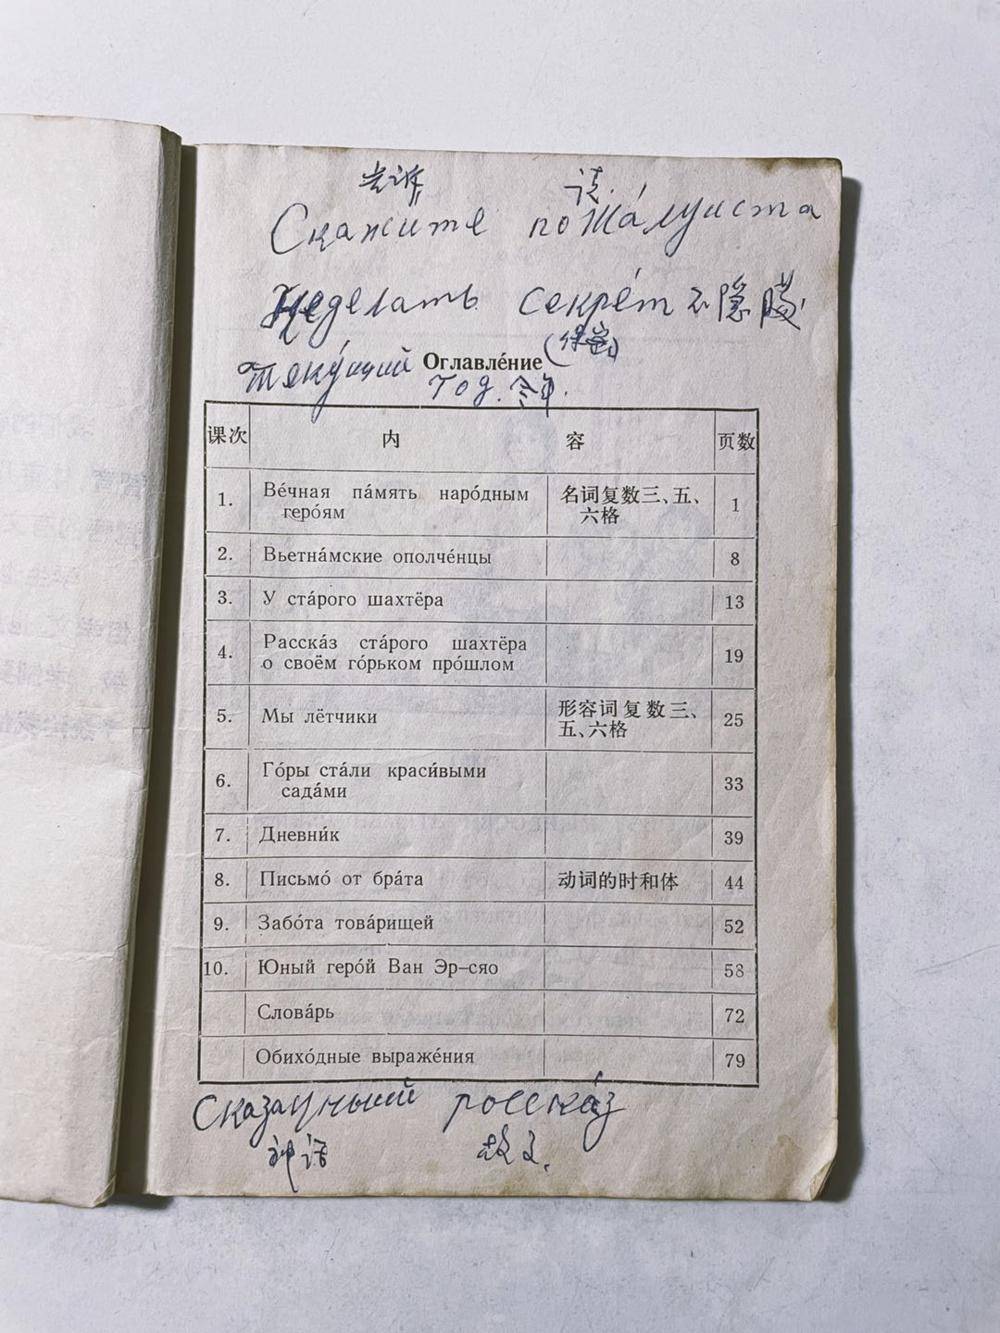 告诉 请
Скажите пожа́луиста
Не делать секре́т 不隐瞒
(保密)
теку́щий Оглавле́ние
год. 今年.
课次 内 容 页数
1. Ве́чная па́мять наро́дным геро́ям 名词复数三、五、六格 1
2. Вьетна́мские ополче́нцы 8
3. У ста́рого шахтёра 13
4. Расска́з ста́рого шахтёра о своём го́рьком про́шлом 19
5. Мы лётчики 形容词复数三、五、六格 25
6. Го́ры ста́ли краси́выми сада́ми 33
7. Дневни́к 39
8. Письмо́ от бра́та 动词的时和体 44
9. Забо́та това́рищей 52
10. Юный геро́й Ван Эр-сяо 58
Слова́рь 72
Обихо́дные выраже́ния 79
росска́з
神话 故事.